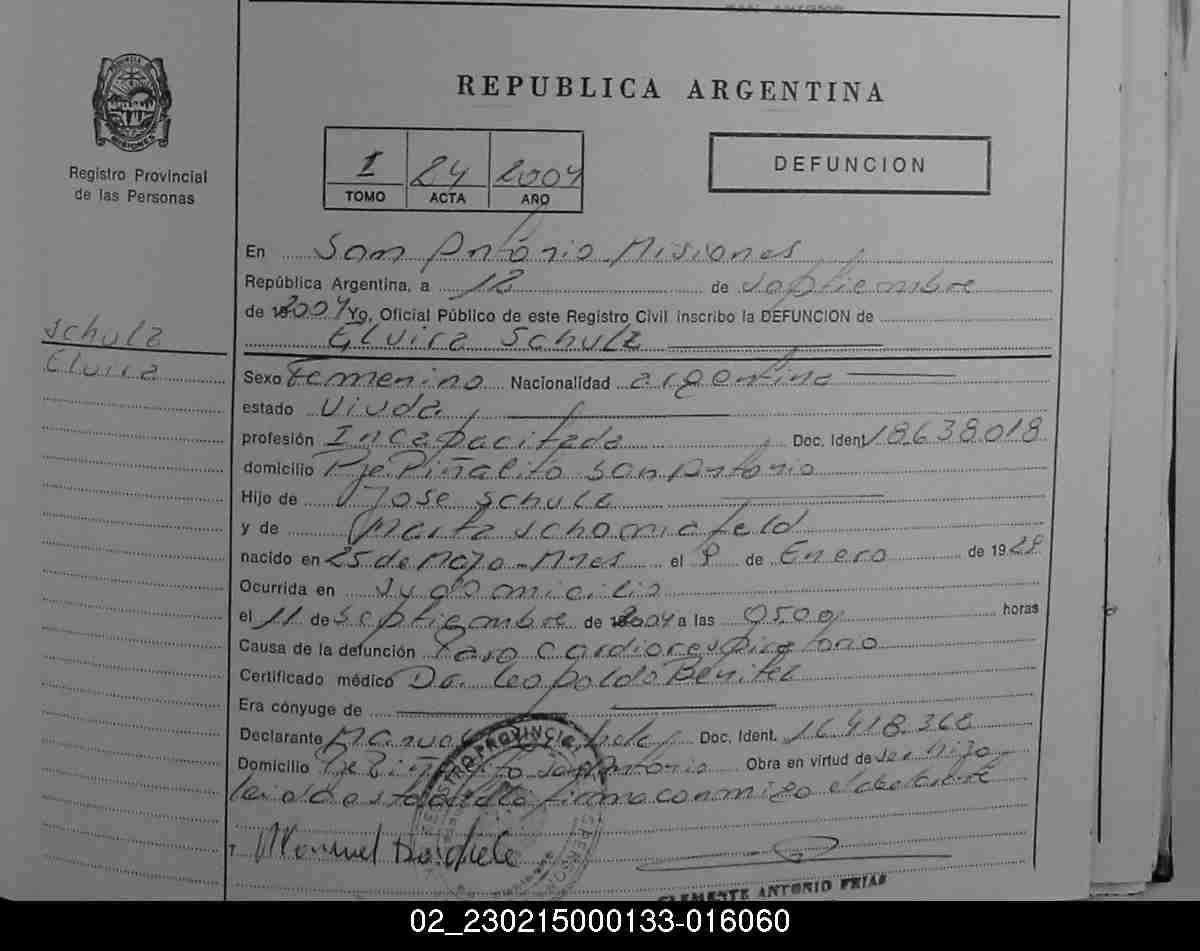 REPUBLICA ARGENTINA
PROVINCIA DE
MISIONES
Registro Provincial
de las Personas
I 24 2004
TOMO ACTA AÑO
DEFUNCION
En San Antonio Misiones
República Argentina, a 12 de septiembre
de 2004 Yo, Oficial Público de este Registro Civil inscribo la DEFUNCION de
Elvira Schulz
Schulz
Elvira
Sexo Femenino Nacionalidad argentina
estado Viuda
profesión Incapacitada Doc. Ident. 18.638.018
domicilio Pje Piñalito San Antonio
Hijo de Jose Schulz
y de Marta
nacido en 25 de Mayo - Mnes el 9 de Enero de 1929
Ocurrida en su domicilio
el 11 de septiembre de 2004 a las 0500 horas
Causa de la defunción Paro Cardiorespiratorio
Certificado médico Dr. Leopoldo Benitez
Era cónyuge de
Declarante Manuel Doc. Ident. 16.418.368
Domicilio Pje Piñalito San Antonio Obra en virtud de ser hijo
leida esta acta firma conmigo el declarante
Manuel
REGISTRO PROVINCIAL
CLEMENTE ANTONIO FRIAS
02_230215000133-016060